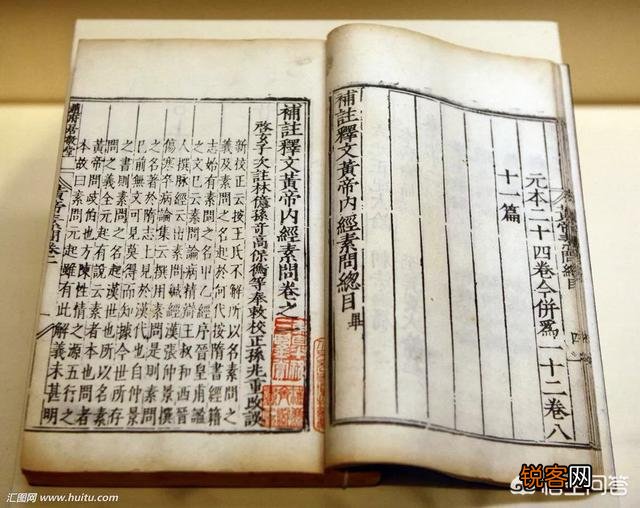 元本二十四卷今併爲一十二卷八
十一篇
補註釋文黃帝內經素問總目畢
補註釋文黃帝內經素問卷之
啓玄子次註林億孫奇高保衡等奉敕校正孫兆重改誤
新校正云按王氏不解所以名素問之
義及素問之名起於何代按隋書經籍
志始有素問之名甲乙經序晉皇甫謐
之文已云素問論病精辯王叔和西晉
人撰脉經云出素問鍼經漢張仲景撰
傷寒卒病論集云撰用素問是則素問
之名著於隋志上見於漢代也自仲景
已前無文可見莫得而知據今世所存
之書則素問之名起漢世也所以名素
問之義全元起有說云素者本也問者
黃帝問岐伯也方陳性情之源五行之
本故曰素問元起雖有此解義未甚明
汇图网 www.huitu.com
锐客网
悟空问答